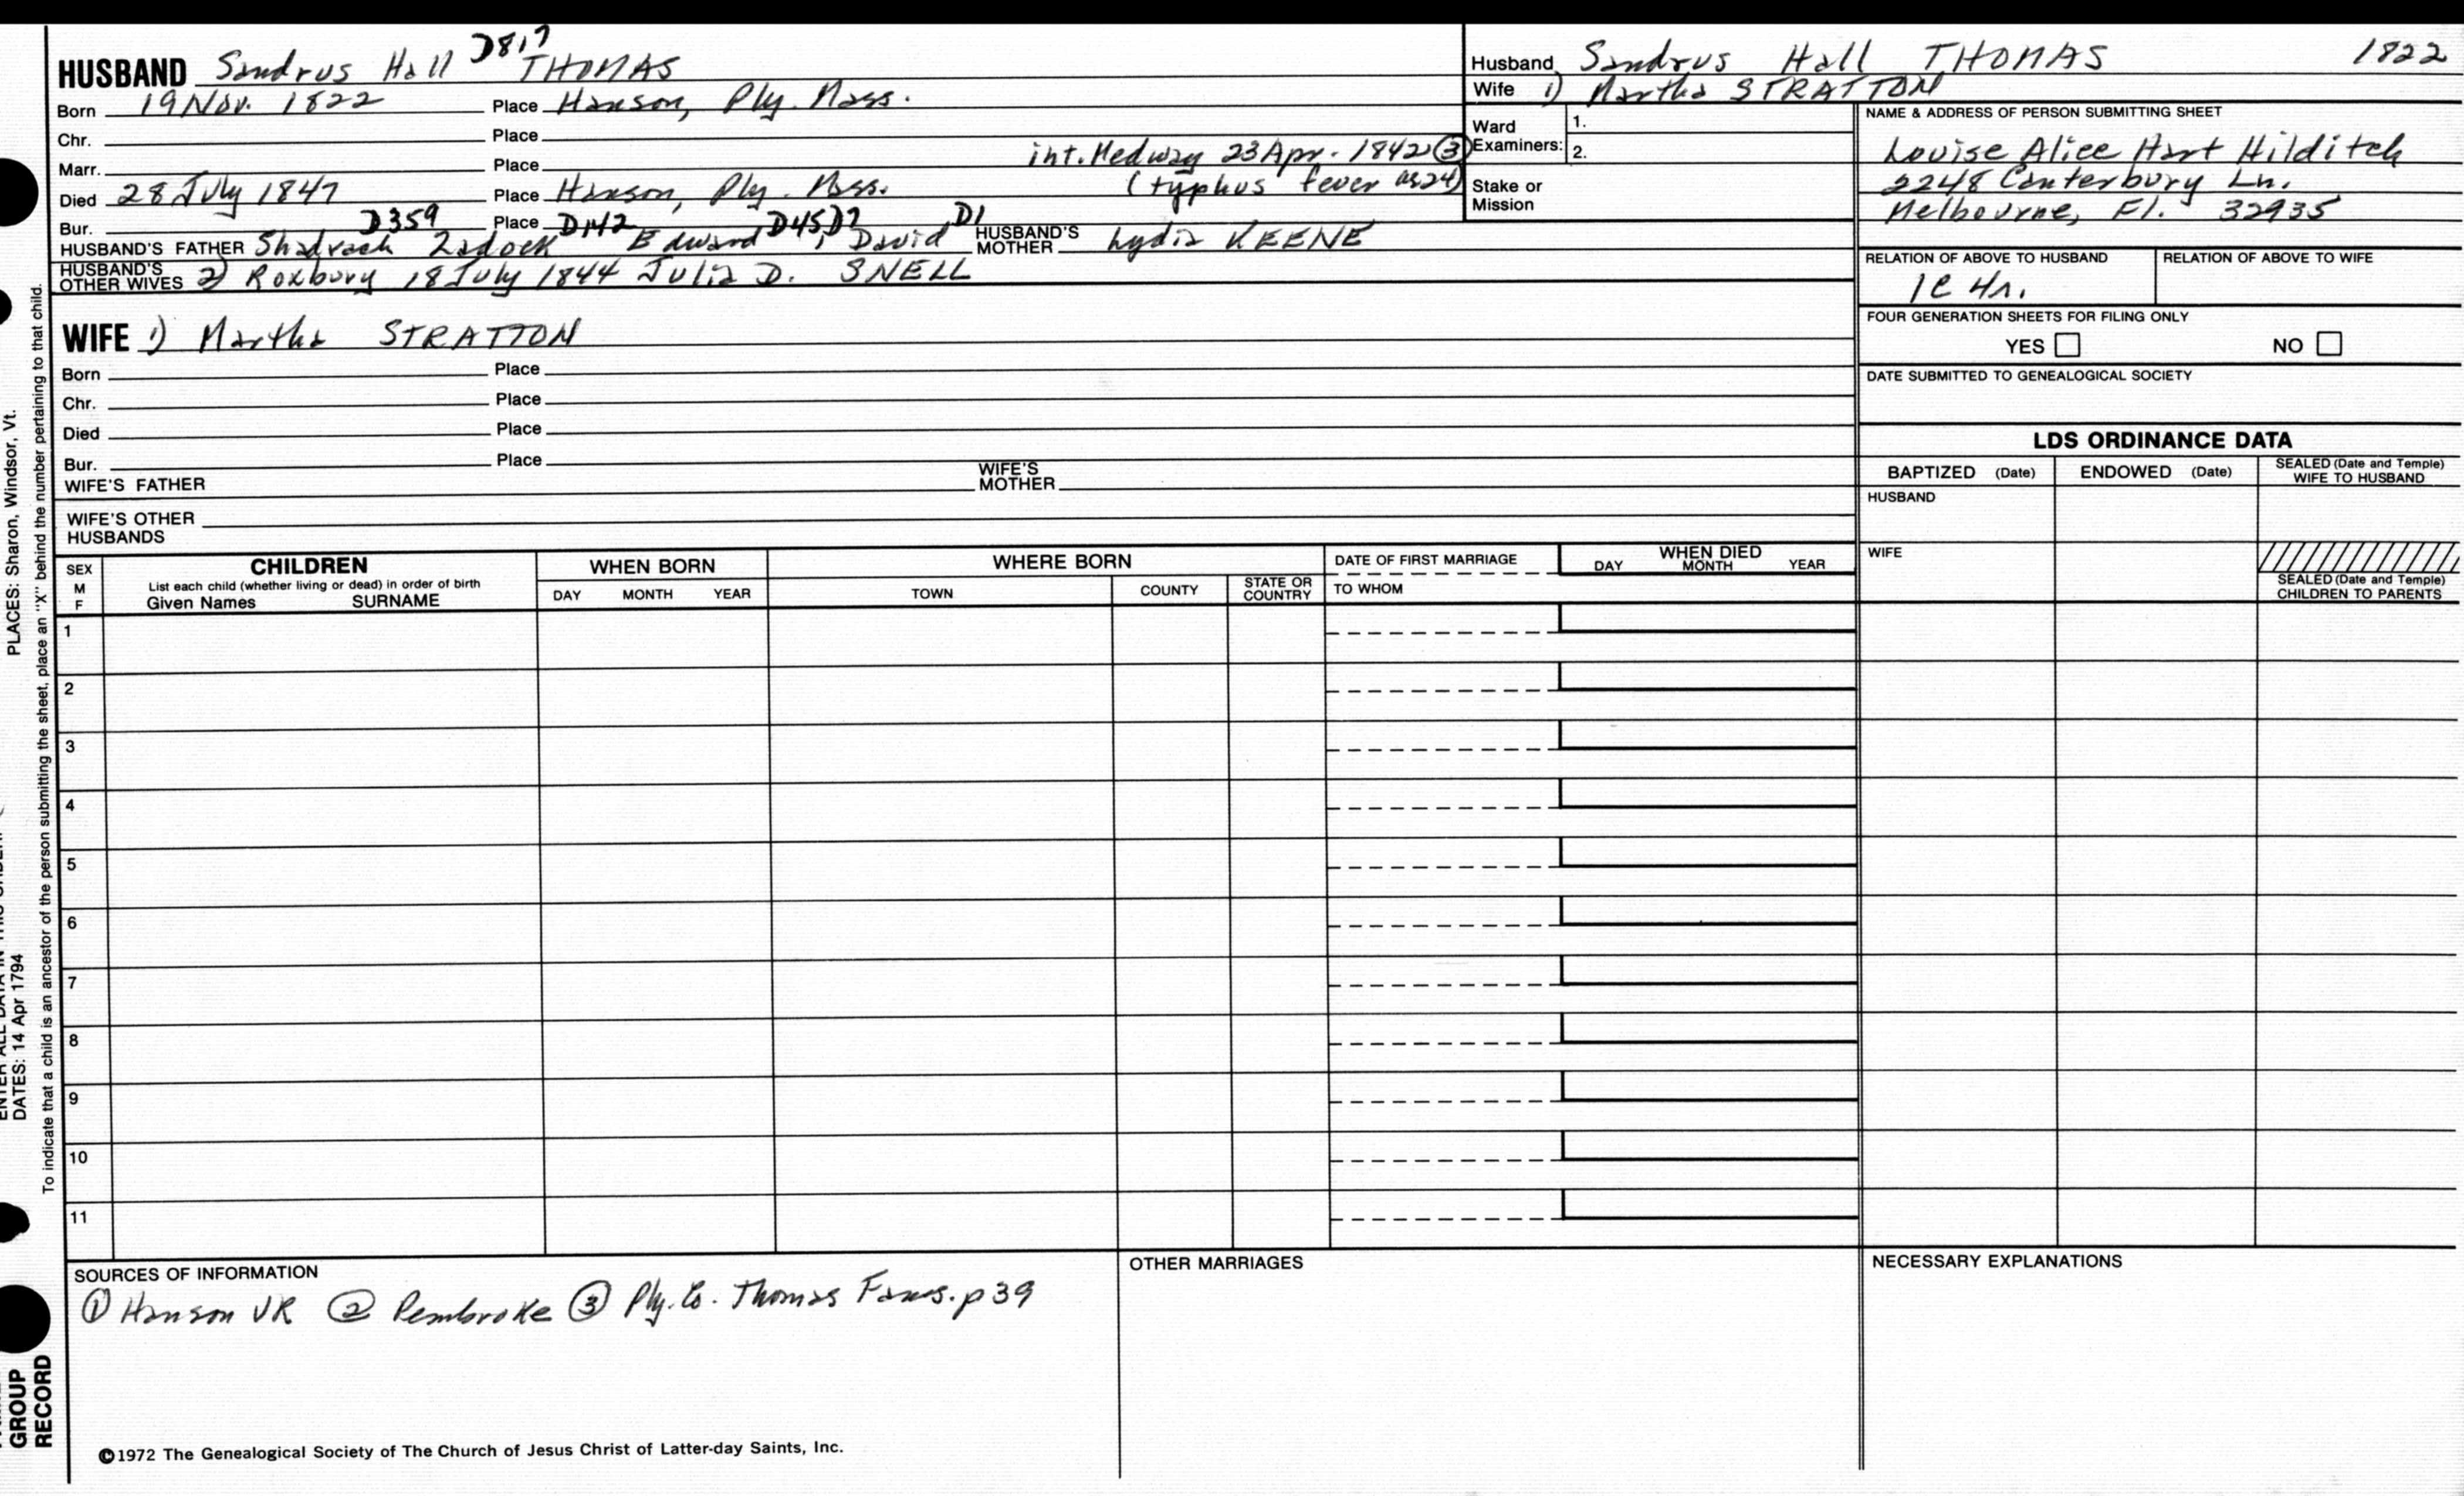 HUSBAND Sandrus Hall D817 THOMAS
Born 19 Nov. 1822 Place Hanson, Ply. Mass.
Chr. Place
Marr. Place int. Medway 23 Apr. 1842 ③
Died 28 July 1847 Place Hanson, Ply. Mass. (typhus fever as 24)
Bur. Place
D359 D142 D45 D7 D1
HUSBAND'S FATHER Shadrach Zadock Edward, David HUSBAND'S MOTHER Lydia KEENE
HUSBAND'S OTHER WIVES 2) Roxbury 18 July 1844 Julia D. SNELL
WIFE 1) Martha STRATTON
Born Place
Chr. Place
Died Place
Bur. Place
WIFE'S FATHER WIFE'S MOTHER
WIFE'S OTHER HUSBANDS
Husband Sandrus Hall THOMAS 1822
Wife 1) Martha STRATTON
Ward Examiners: 1. 2.
Stake or Mission
NAME & ADDRESS OF PERSON SUBMITTING SHEET
Louise Alice Hart Hilditch
2248 Canterbury Ln.
Melbourne, Fl. 32935
RELATION OF ABOVE TO HUSBAND RELATION OF ABOVE TO WIFE
1c 4r.
FOUR GENERATION SHEETS FOR FILING ONLY
YES NO
DATE SUBMITTED TO GENEALOGICAL SOCIETY
LDS ORDINANCE DATA
BAPTIZED (Date) ENDOWED (Date) SEALED (Date and Temple) WIFE TO HUSBAND
HUSBAND
WIFE
SEALED (Date and Temple) CHILDREN TO PARENTS
SEX M F
CHILDREN
List each child (whether living or dead) in order of birth
Given Names SURNAME
WHEN BORN
DAY MONTH YEAR
WHERE BORN
TOWN COUNTY STATE OR COUNTRY
DATE OF FIRST MARRIAGE
TO WHOM
WHEN DIED
DAY MONTH YEAR
1
2
3
4
5
6
7
8
9
10
11
SOURCES OF INFORMATION
① Hanson VR ② Pembroke ③ Ply. Co. Thomas Fams. p 39
OTHER MARRIAGES
NECESSARY EXPLANATIONS
©1972 The Genealogical Society of The Church of Jesus Christ of Latter-day Saints, Inc.
PLACES: Sharon, Windsor, Vt.
DATES: 14 Apr 1794
To indicate that a child is an ancestor of the person submitting the sheet, place an "X" behind the number pertaining to that child.
GROUP
RECORD